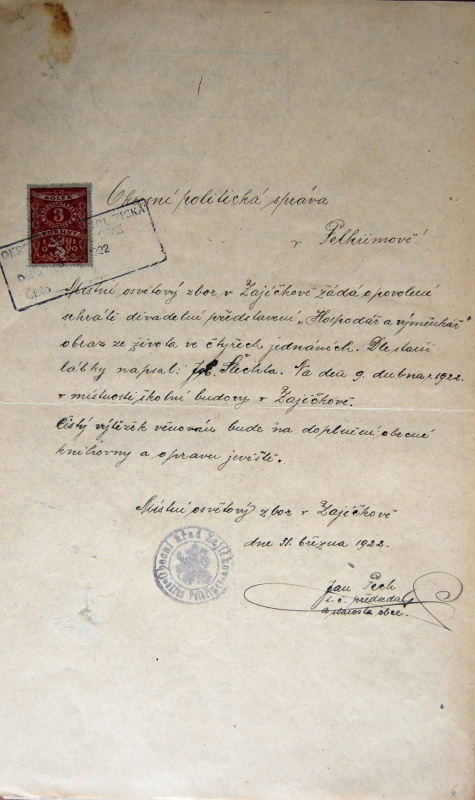 Okresní politická správa
KOLEK
3
KORUNY
v Pelhřimově!
1922
Číslo
Místní osvětový sbor v Zajíčkově žádá o povolení
sehráti divadelní představení „Hospodář a výměnkář"
obraz ze života ve čtyřech jednáních. Dle starší
látky napsal: Jos. Šlechta. Na den 9. dubna r. 1922.
v místnosti školní budovy v Zajíčkově.
Čistý výtěžek věnován bude na doplnění obecné
knihovny a opravu jeviště.
Místní osvětový sbor v Zajíčkově
dne 31. března 1922.
Obecní úřad
Jan Pech
t. č. předseda
a starosta obce.
6